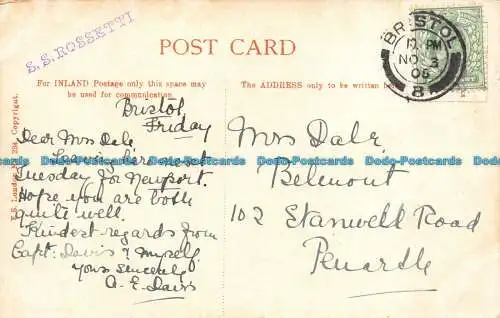 S.S. ROSSETTI
POST CARD
For INLAND Postage only this space may
be used for communication.
The ADDRESS only to be written
Bristol
Friday
Dear Mrs Dale,
Leaving here next
Tuesday for Newport.
Hope you are both
quite well.
Kindest regards from
Capt. Davis & myself.
Yours Sincerely
A. E. Davis
Mrs Dale,
Belmont
102 Stanwell Road
Penarth
BRISTOL
12 PM
NO 3
05
8
Copyright.
Dodo-Postcards Dodo-Postcards Dodo-Postcards Dodo-Postcards